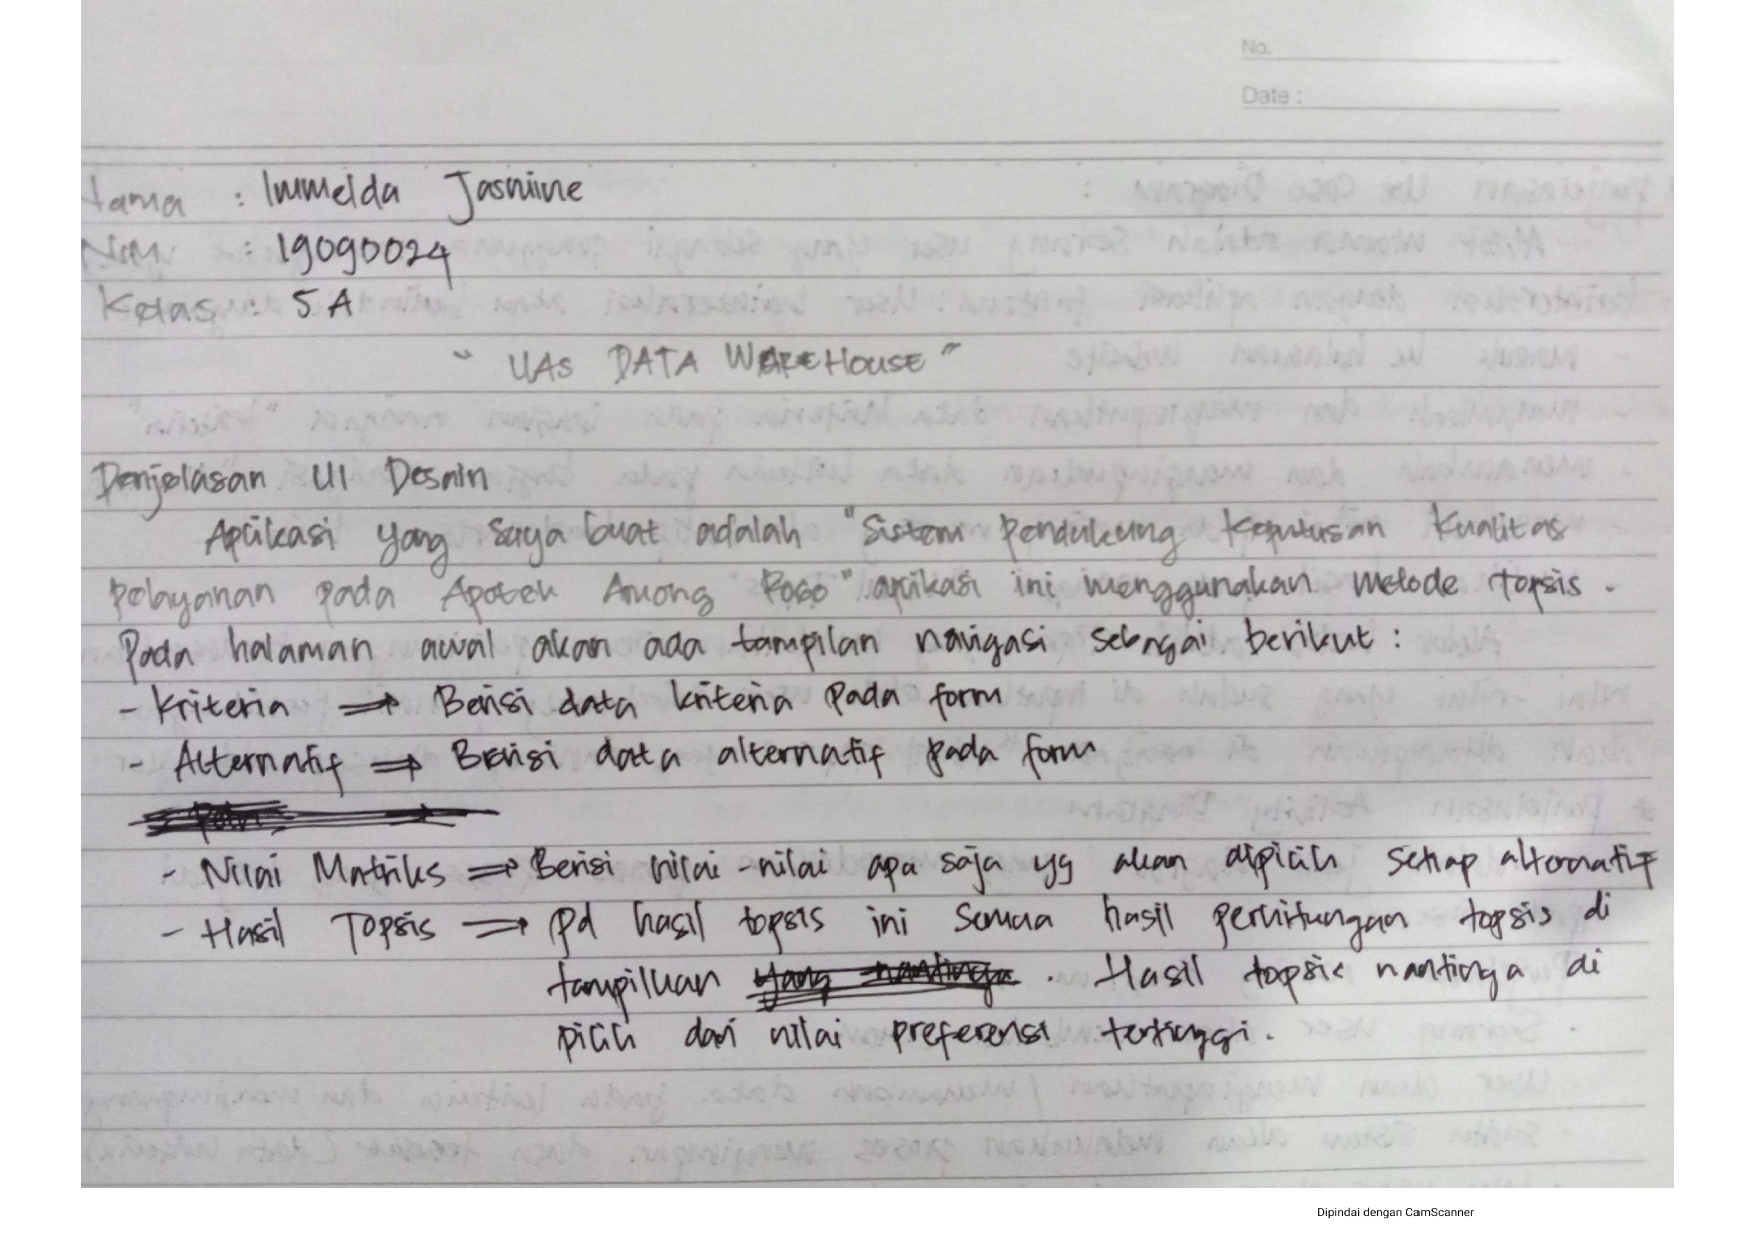 No.
Date :
Nama : Immelda Jasmine
NIM : 19090024
Kelas : 5 A
" UAS DATA WAREHOUSE "
Penjelasan UI Desain
Aplikasi yang saya buat adalah "Sistem Pendukung Keputusan Kualitas
Pelayanan pada Apotek Among Roso" aplikasi ini menggunakan metode topsis .
Pada halaman awal akan ada tampilan navigasi sebagai berikut :
- Kriteria ⇒ Berisi data kriteria pada form
- Alternatif ⇒ Berisi data alternatif pada form
- Nilai Matriks ⇒ Berisi nilai-nilai apa saja yg akan dipilih setiap alternatif
- Hasil Topsis ⇒ Pd hasil topsis ini semua hasil perhitungan topsis di
tampilkan . Hasil topsis nantinya di
pilih dari nilai preferensi tertinggi .
Dipindai dengan CamScanner